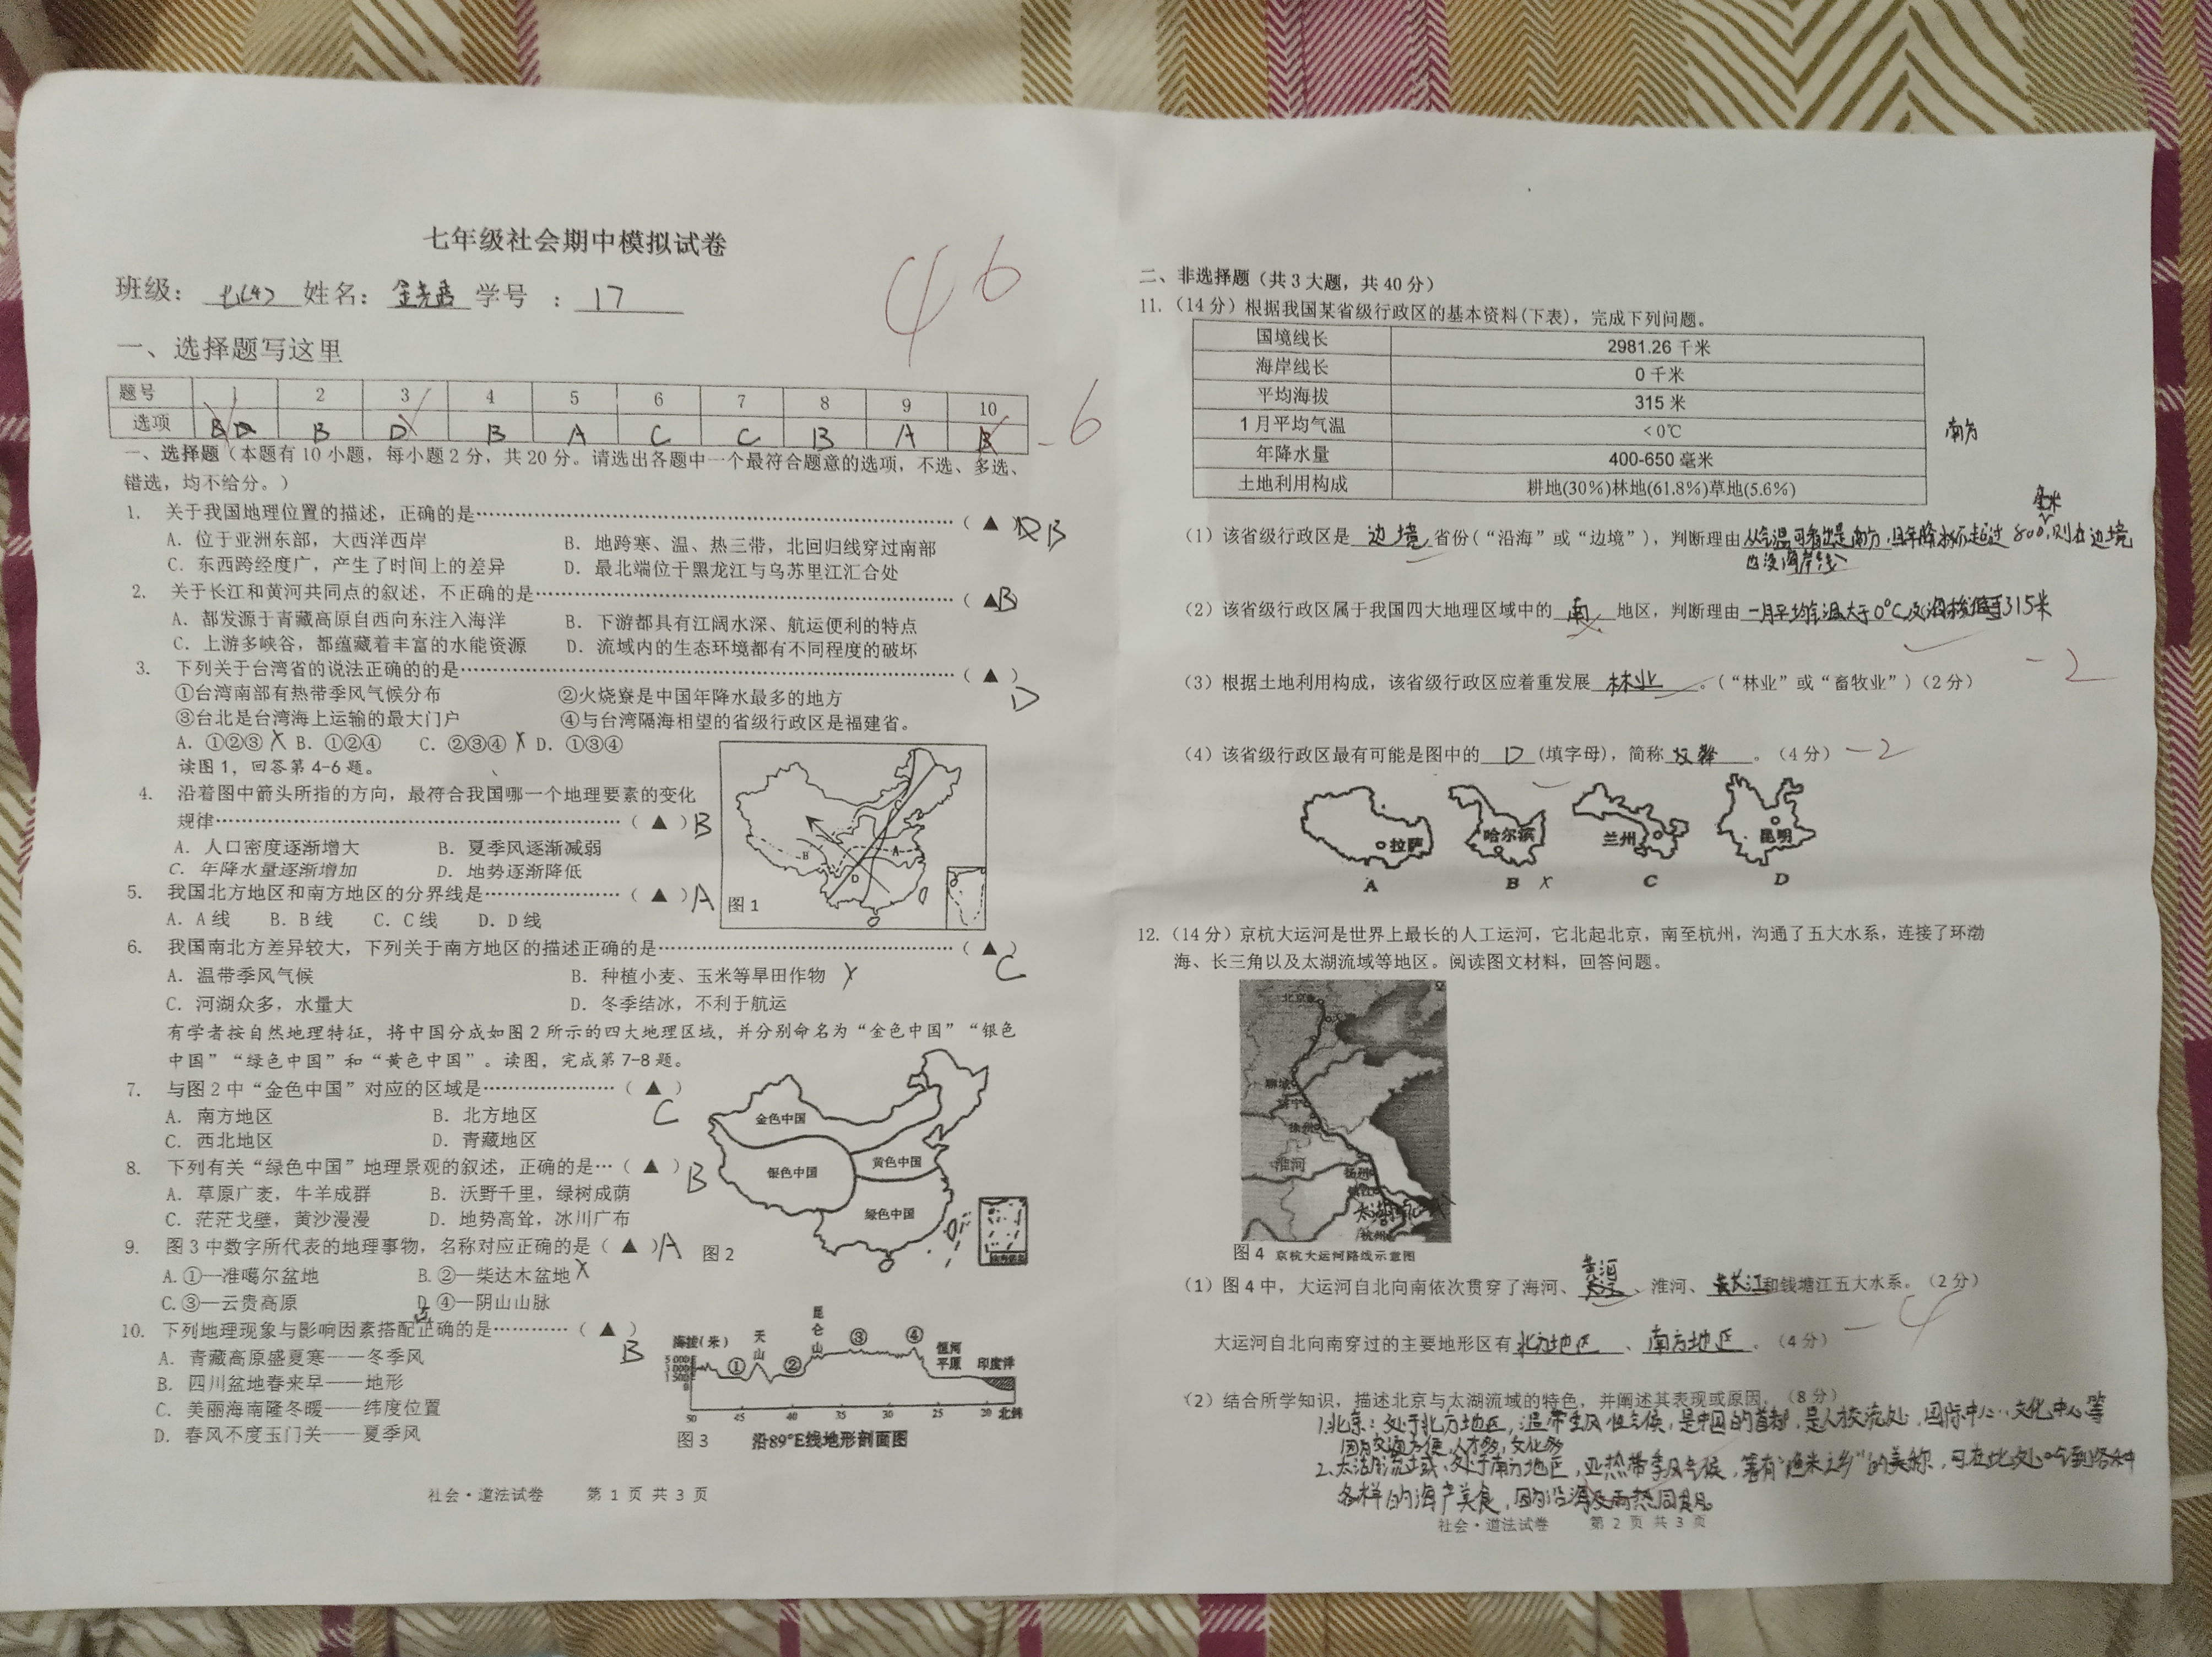 七年级社会期中模拟试卷
46
班级： 七(4) 姓名： 学号 ： 17
一、选择题写这里
题号 1 2 3 4 5 6 7 8 9 10
选项 B D B D B A C C B A B
-6
一、选择题（本题有10小题，每小题2分，共20分。请选出各题中一个最符合题意的选项，不选、多选、
错选，均不给分。）
1. 关于我国地理位置的描述，正确的是……（ ▲ ） B
A. 位于亚洲东部，大西洋西岸 B. 地跨寒、温、热三带，北回归线穿过南部
C. 东西跨经度广，产生了时间上的差异 D. 最北端位于黑龙江与乌苏里江汇合处
2. 关于长江和黄河共同点的叙述，不正确的是……（ ▲ B
A. 都发源于青藏高原自西向东注入海洋 B. 下游都具有江阔水深、航运便利的特点
C. 上游多峡谷，都蕴藏着丰富的水能资源 D. 流域内的生态环境都有不同程度的破坏
3. 下列关于台湾省的说法正确的的是……（ ▲ ） D
①台湾南部有热带季风气候分布 ②火烧寮是中国年降水最多的地方
③台北是台湾海上运输的最大门户 ④与台湾隔海相望的省级行政区是福建省。
A. ①②③ X B. ①②④ C. ②③④ X D. ①③④
读图1，回答第4-6题。
4. 沿着图中箭头所指的方向，最符合我国哪一个地理要素的变化
规律……（ ▲ ） B
A. 人口密度逐渐增大 B. 夏季风逐渐减弱
C. 年降水量逐渐增加 D. 地势逐渐降低
5. 我国北方地区和南方地区的分界线是……（ ▲ ） A
A. A线 B. B线 C. C线 D. D线
A B C D
图1
6. 我国南北方差异较大，下列关于南方地区的描述正确的是……（ ▲ ） C
A. 温带季风气候 B. 种植小麦、玉米等旱田作物 X
C. 河湖众多，水量大 D. 冬季结冰，不利于航运
有学者按自然地理特征，将中国分成如图2所示的四大地理区域，并分别命名为“金色中国”“银色
中国”“绿色中国”和“黄色中国”。读图，完成第7-8题。
7. 与图2中“金色中国”对应的区域是……（ ▲ ） C
A. 南方地区 B. 北方地区
C. 西北地区 D. 青藏地区
8. 下列有关“绿色中国”地理景观的叙述，正确的是…（ ▲ ） B
A. 草原广袤，牛羊成群 B. 沃野千里，绿树成荫
C. 茫茫戈壁，黄沙漫漫 D. 地势高耸，冰川广布
金色中国
银色中国
黄色中国
绿色中国
图2
9. 图3中数字所代表的地理事物，名称对应正确的是（ ▲ ） A
A. ①—准噶尔盆地 B. ②—柴达木盆地 X
C. ③—云贵高原 D. ④—阴山山脉
10. 下列地理现象与影响因素搭配正确的是…………（ ▲ ） B
A. 青藏高原盛夏寒——冬季风
B. 四川盆地春来早——地形
C. 美丽海南隆冬暖——纬度位置
D. 春风不度玉门关——夏季风
海拔（米） 天山 昆仑山 ① ② ③ ④ 恒河平原 印度洋
50 45 40 35 30 25 20 北纬
图3 沿89°E线地形剖面图
社会·道法试卷 第 1 页 共 3 页
二、非选择题（共3大题，共40分）
11.（14分）根据我国某省级行政区的基本资料（下表），完成下列问题。
国境线长 2981.26 千米
海岸线长 0 千米
平均海拔 315 米
1月平均气温 <0℃
年降水量 400-650 毫米
土地利用构成 耕地(30%)林地(61.8%)草地(5.6%)
南方
毫米
（1）该省级行政区是 边境 省份（“沿海”或“边境”），判断理由 从气温可看出是南方，且年降水不超过800，则在边境
也没海岸线
（2）该省级行政区属于我国四大地理区域中的 南 地区，判断理由 一月平均气温大于0℃及海拔 315米
-2
（3）根据土地利用构成，该省级行政区应着重发展 林业 。（“林业”或“畜牧业”）（2分）
（4）该省级行政区最有可能是图中的 D （填字母），简称 。（4分） -2
拉萨 哈尔滨 兰州 昆明
A B X C D
12.（14分）京杭大运河是世界上最长的人工运河，它北起北京，南至杭州，沟通了五大水系，连接了环渤
海、长三角以及太湖流域等地区。阅读图文材料，回答问题。
北京
聊城
济宁
徐州
淮河
扬州
镇江
杭州
图4 京杭大运河路线示意图
（1）图4中，大运河自北向南依次贯穿了海河、 黄河 、淮河、 长江 和钱塘江五大水系。（2分）
大运河自北向南穿过的主要地形区有 北方地区 、 南方地区 。（4分） -4
（2）结合所学知识，描述北京与太湖流域的特色，并阐述其表现或原因。（8分）
1.北京：处于北方地区，温带季风性气候，是中国的首都，是人才交流处，国际中心，文化中心等
因为交通方便，人才多，文化多
2.太湖流域：处于南方地区，亚热带季风气候，著有“渔米之乡”的美称，可在此处吃到各种
各样的海产美食，因为沿海及雨热同期。
社会·道法试卷 第 2 页 共 3 页